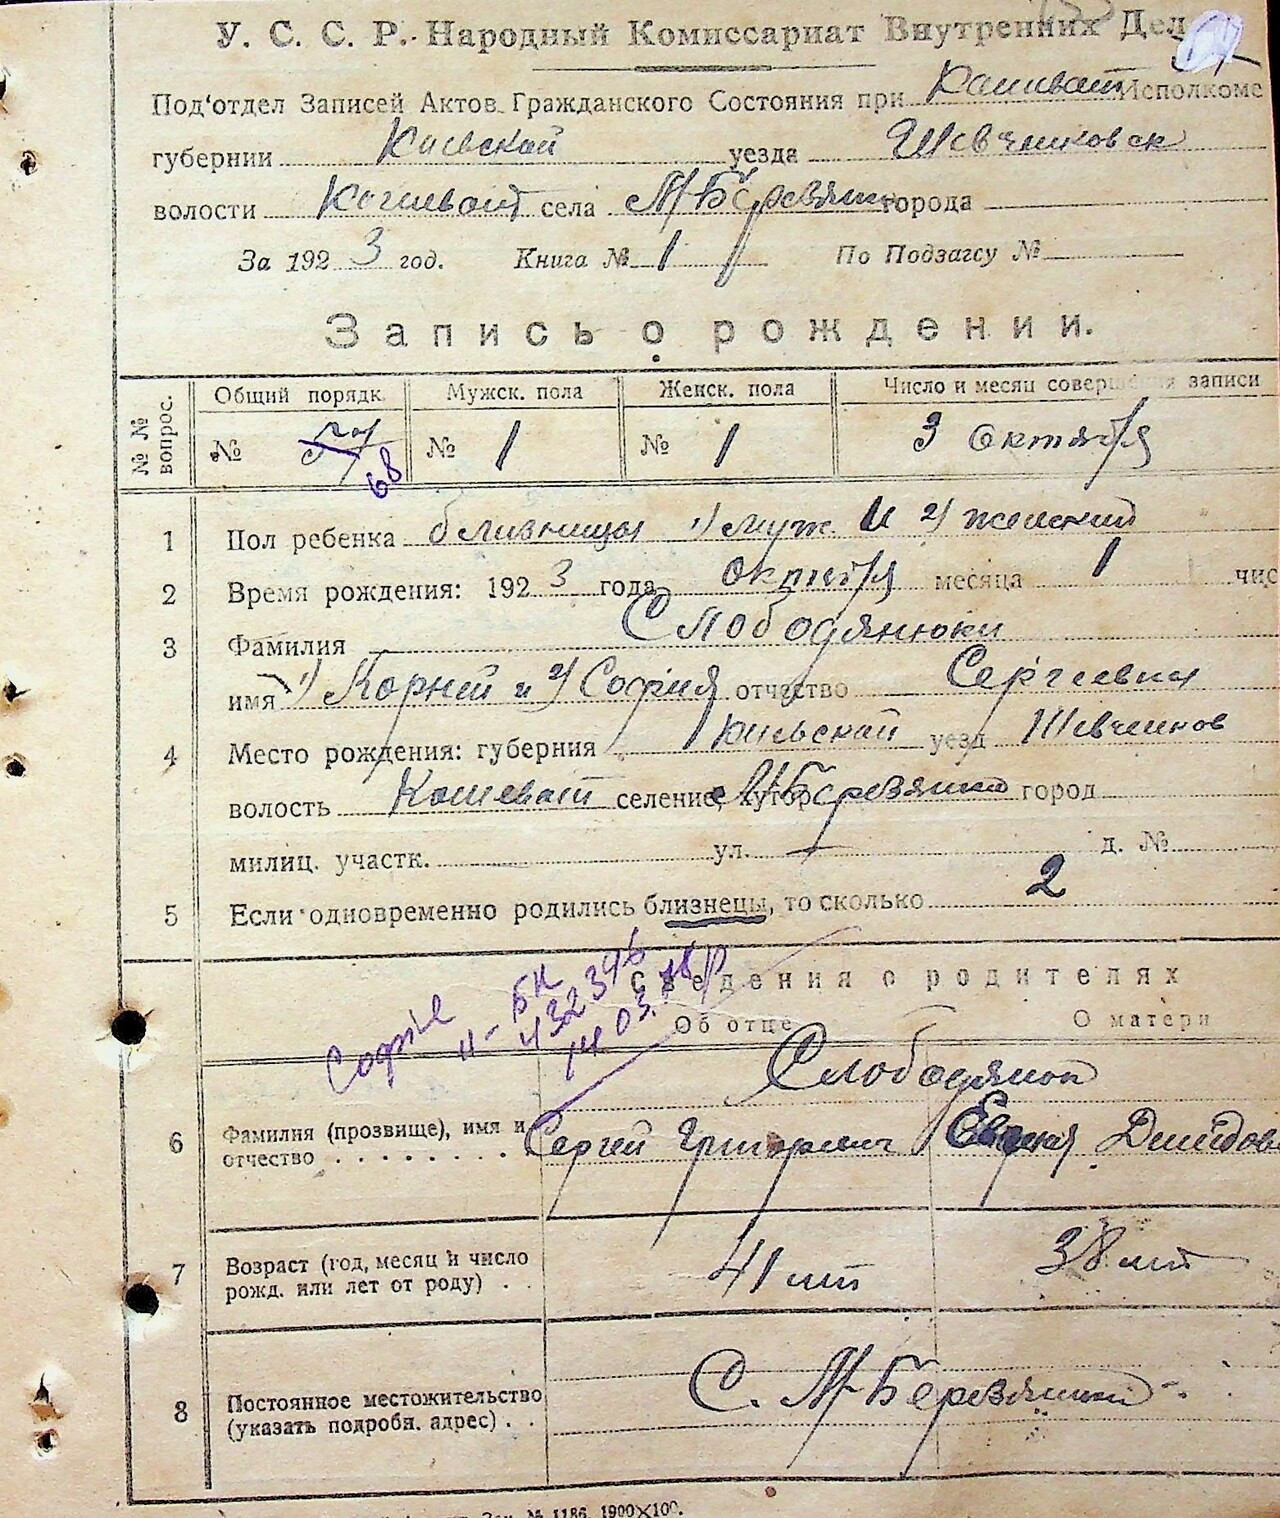 У. С. С. Р. Народный Комиссариат Внутренних Дел
Под'отдел Записей Актов Гражданского Состояния при Кошеват Исполкоме
губернии Киевской уезда Шевченковск
волости Кошеват села М-Березянки города
За 1923 год. Книга № 1 По Подзагсу №
Запись о рождении.
№ № вопрос.
Общий порядк. Мужск. пола Женск. пола Число и месяц совершения записи
№ 68 № 1 № 1 3 Октября
1 Пол ребенка близницы 1) муж. и 2) женский
2 Время рождения: 1923 года Октября месяца 1 чис
3 Фамилия Слободянюки
имя 1) Корней и 2) София отчество Сергеевич
4 Место рождения: губерния Киевской уезд Шевченков
волость Кошеват селение, хутор М-Березянка город
милиц. участк. ул. — д. №
5 Если одновременно родились близнецы, то сколько 2
Сведения о родителях
Софіє ІІ-БК 432396 14.03.78р
Об отце О матери
Слободянюк
6 Фамилия (прозвище), имя и отчество Сергей Григорьевич Евгения Демидов
7 Возраст (год, месяц и число
рожд. или лет от роду) 41 лет 38 лет
8 Постоянное местожительство
(указать подробн. адрес) С. М-Березянки
№ 1186. 1900×100.